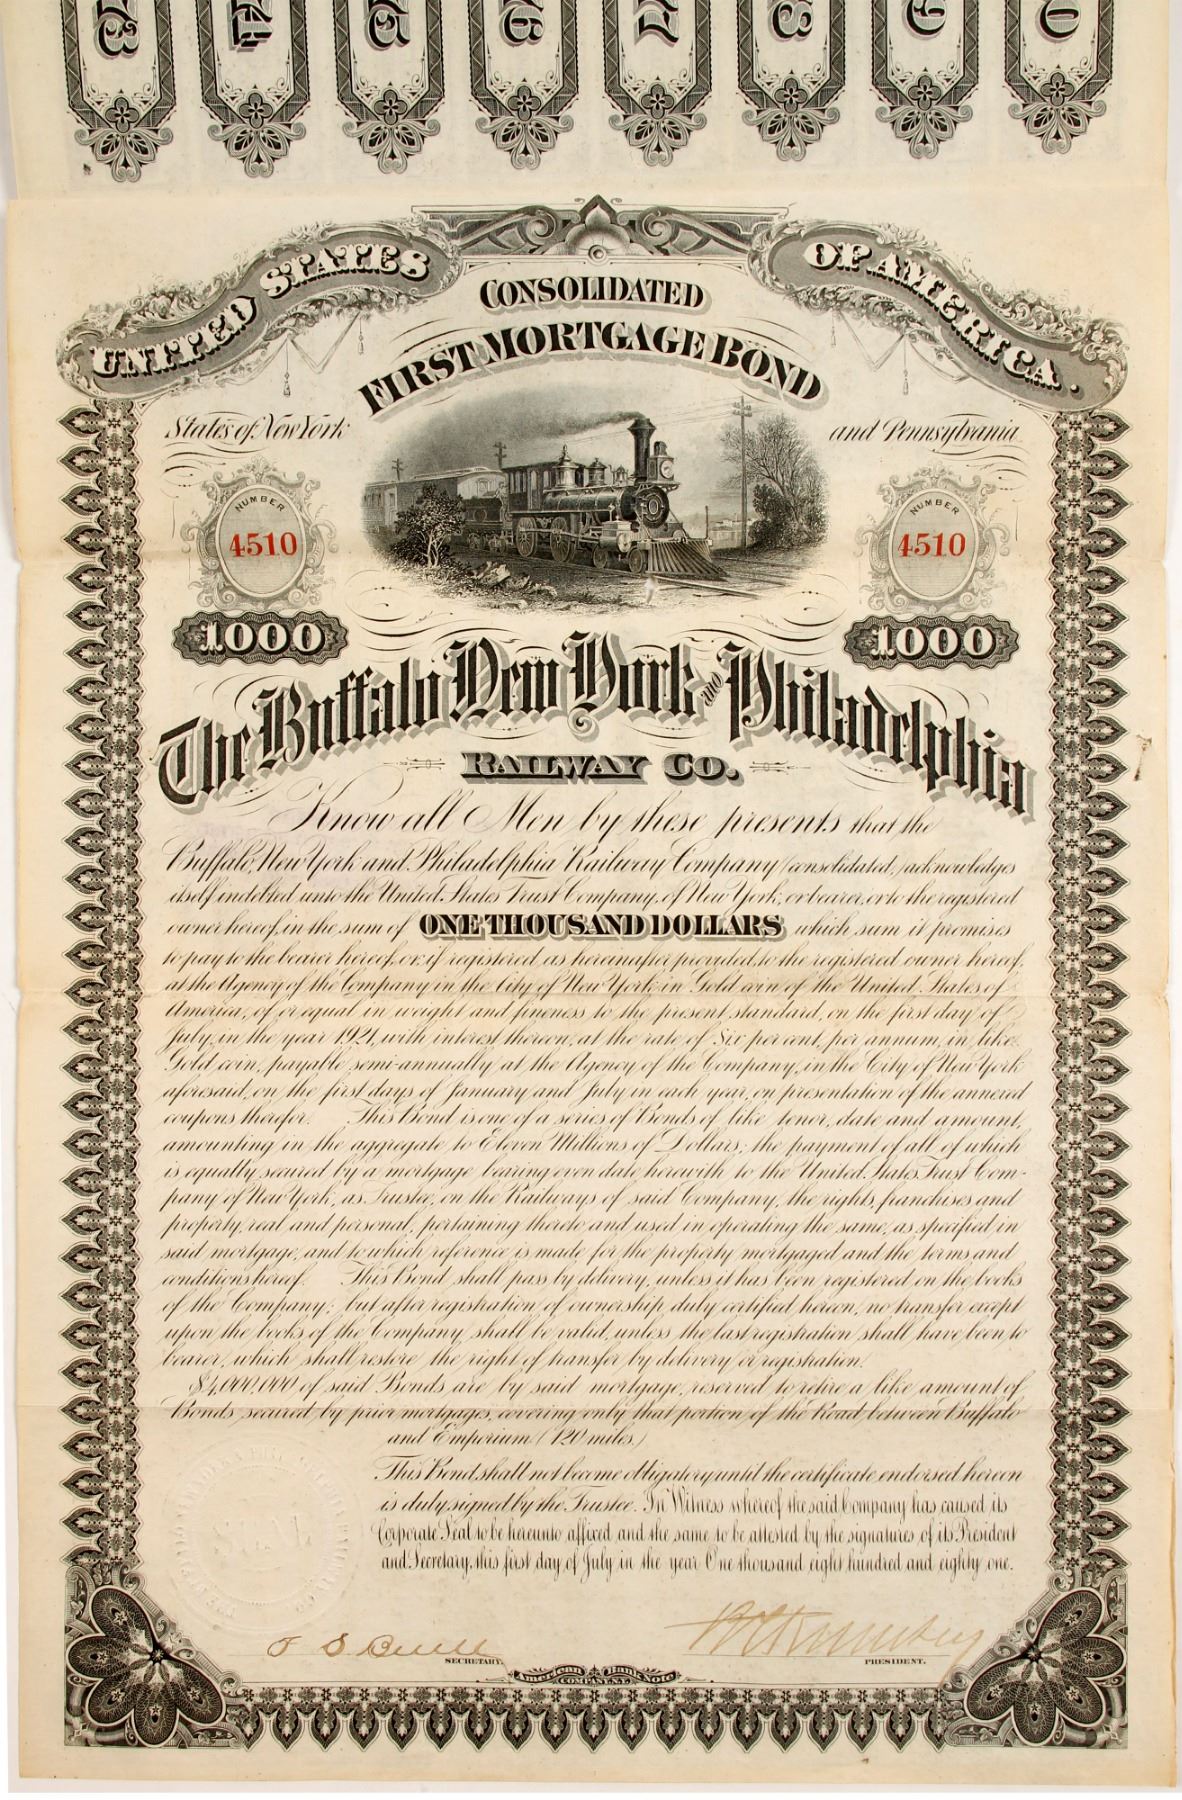 3 4 5 6 7 8 9 0
UNITED STATES OF AMERICA.
CONSOLIDATED
FIRST MORTGAGE BOND
States of New York and Pennsylvania
NUMBER NUMBER
4510 4510
1000 1000
The Buffalo New York AND Philadelphia
RAILWAY CO.
Know all Men by these presents that the
Buffalo, New York and Philadelphia Railway Company (consolidated,) acknowledges
itself indebted unto the United States Trust Company, of New York, or bearer, or to the registered
owner hereof, in the sum of ONE THOUSAND DOLLARS which sum it promises
to pay to the bearer hereof, or, if registered, as hereinafter provided, to the registered owner hereof,
at the Agency of the Company in the City of New York, in Gold coin of the United States of
America, of or equal in weight and fineness to the present standard, on the first day of
July, in the year 1921, with interest thereon, at the rate of Six per cent, per annum, in like
Gold coin, payable semi-annually at the Agency of the Company, in the City of New York
aforesaid, on the first days of January and July in each year, on presentation of the annexed
coupons therefor. This Bond is one of a series of Bonds of like tenor, date and amount,
amounting in the aggregate to Eleven Millions of Dollars; the payment of all of which
is equally secured by a mortgage bearing even date herewith to the United States Trust Com-
pany of New York, as Trustee, on the Railways of said Company, the rights, franchises and
property, real and personal, pertaining thereto and used in operating the same, as specified in
said mortgage, and to which reference is made for the property mortgaged and the terms and
conditions hereof. This Bond shall pass by delivery, unless it has been registered on the books
of the Company; but after registration of ownership, duly certified hereon, no transfer except
upon the books of the Company shall be valid, unless the last registration shall have been to
bearer, which shall restore the right of transfer by delivery or registration.
$4,000,000 of said Bonds are by said mortgage, reserved to retire a like amount of
Bonds secured by prior mortgages, covering only that portion of the Road between Buffalo
and Emporium (120 miles.)
This Bond shall not become obligatory until the certificate endorsed hereon
is duly signed by the Trustee. In Witness whereof the said Company has caused its
Corporate Seal to be hereunto affixed and the same to be attested by the signatures of its President
and Secretary, this first day of July in the year One thousand eight hundred and eighty one.
F S Buell
SECRETARY. PRESIDENT.
American Bank Note
COMPANY, N.Y.